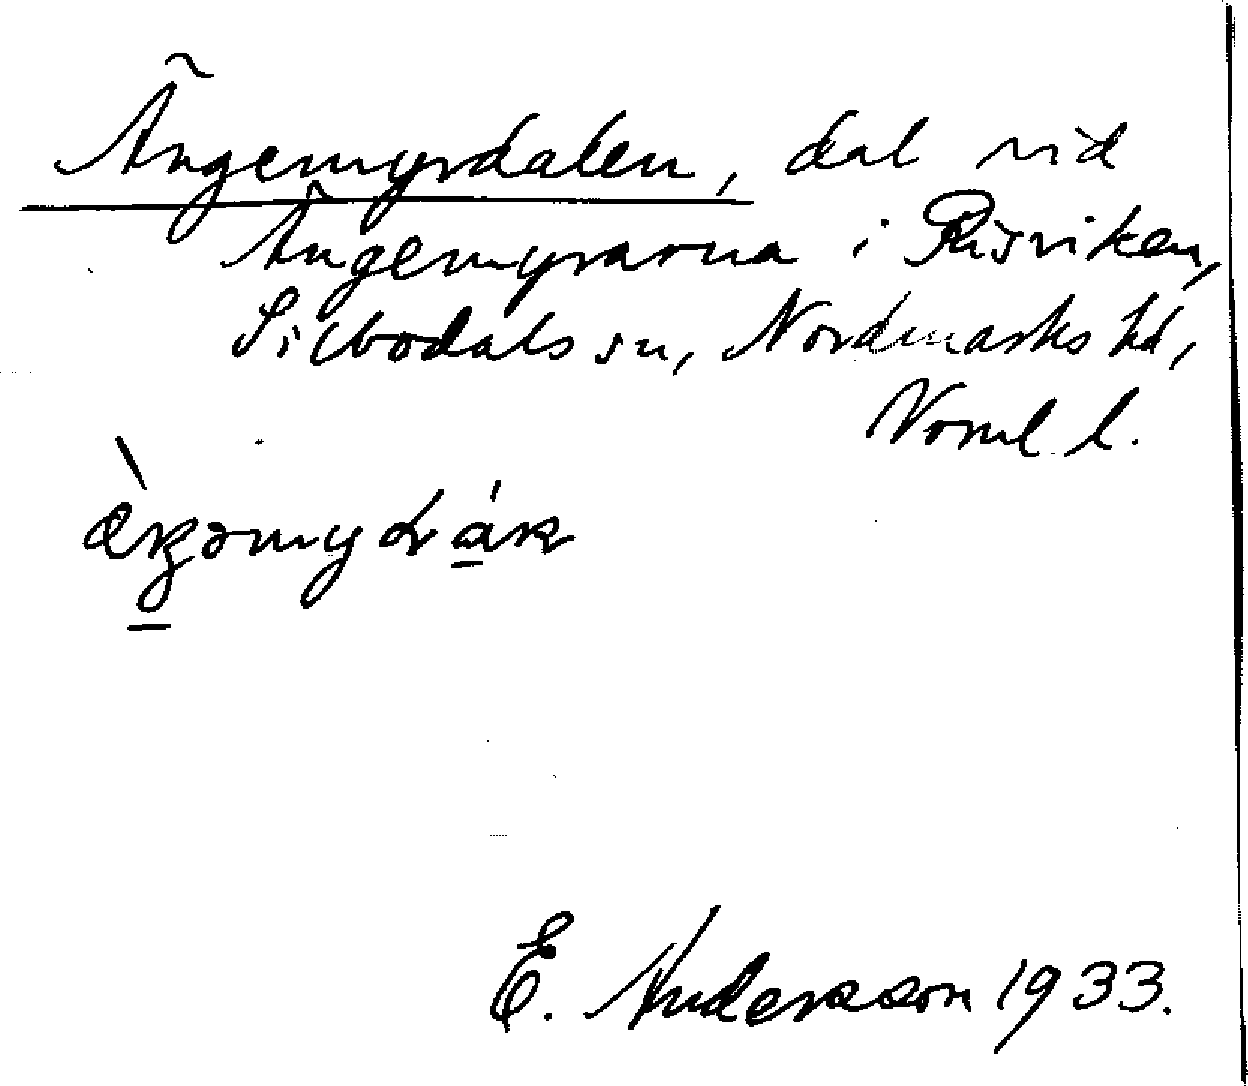 Ängemyrdalen, dal vid
Ängemyrarna i Risviken,
Silbodals sn, Nordmarks hd,
Värml. l.
E. Andersson 1933.